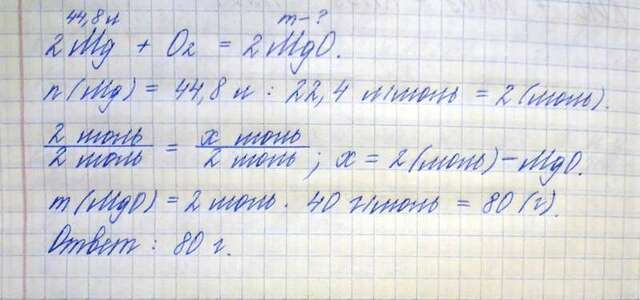 44,8 л m-?
2Mg + O2 = 2MgO.
n(Mg) = 44,8 л : 22,4 л/моль = 2 (моль).
2 моль / 2 моль = x моль / 2 моль ; x = 2 (моль) - MgO.
m(MgO) = 2 моль · 40 г/моль = 80 (г).
Ответ: 80 г.